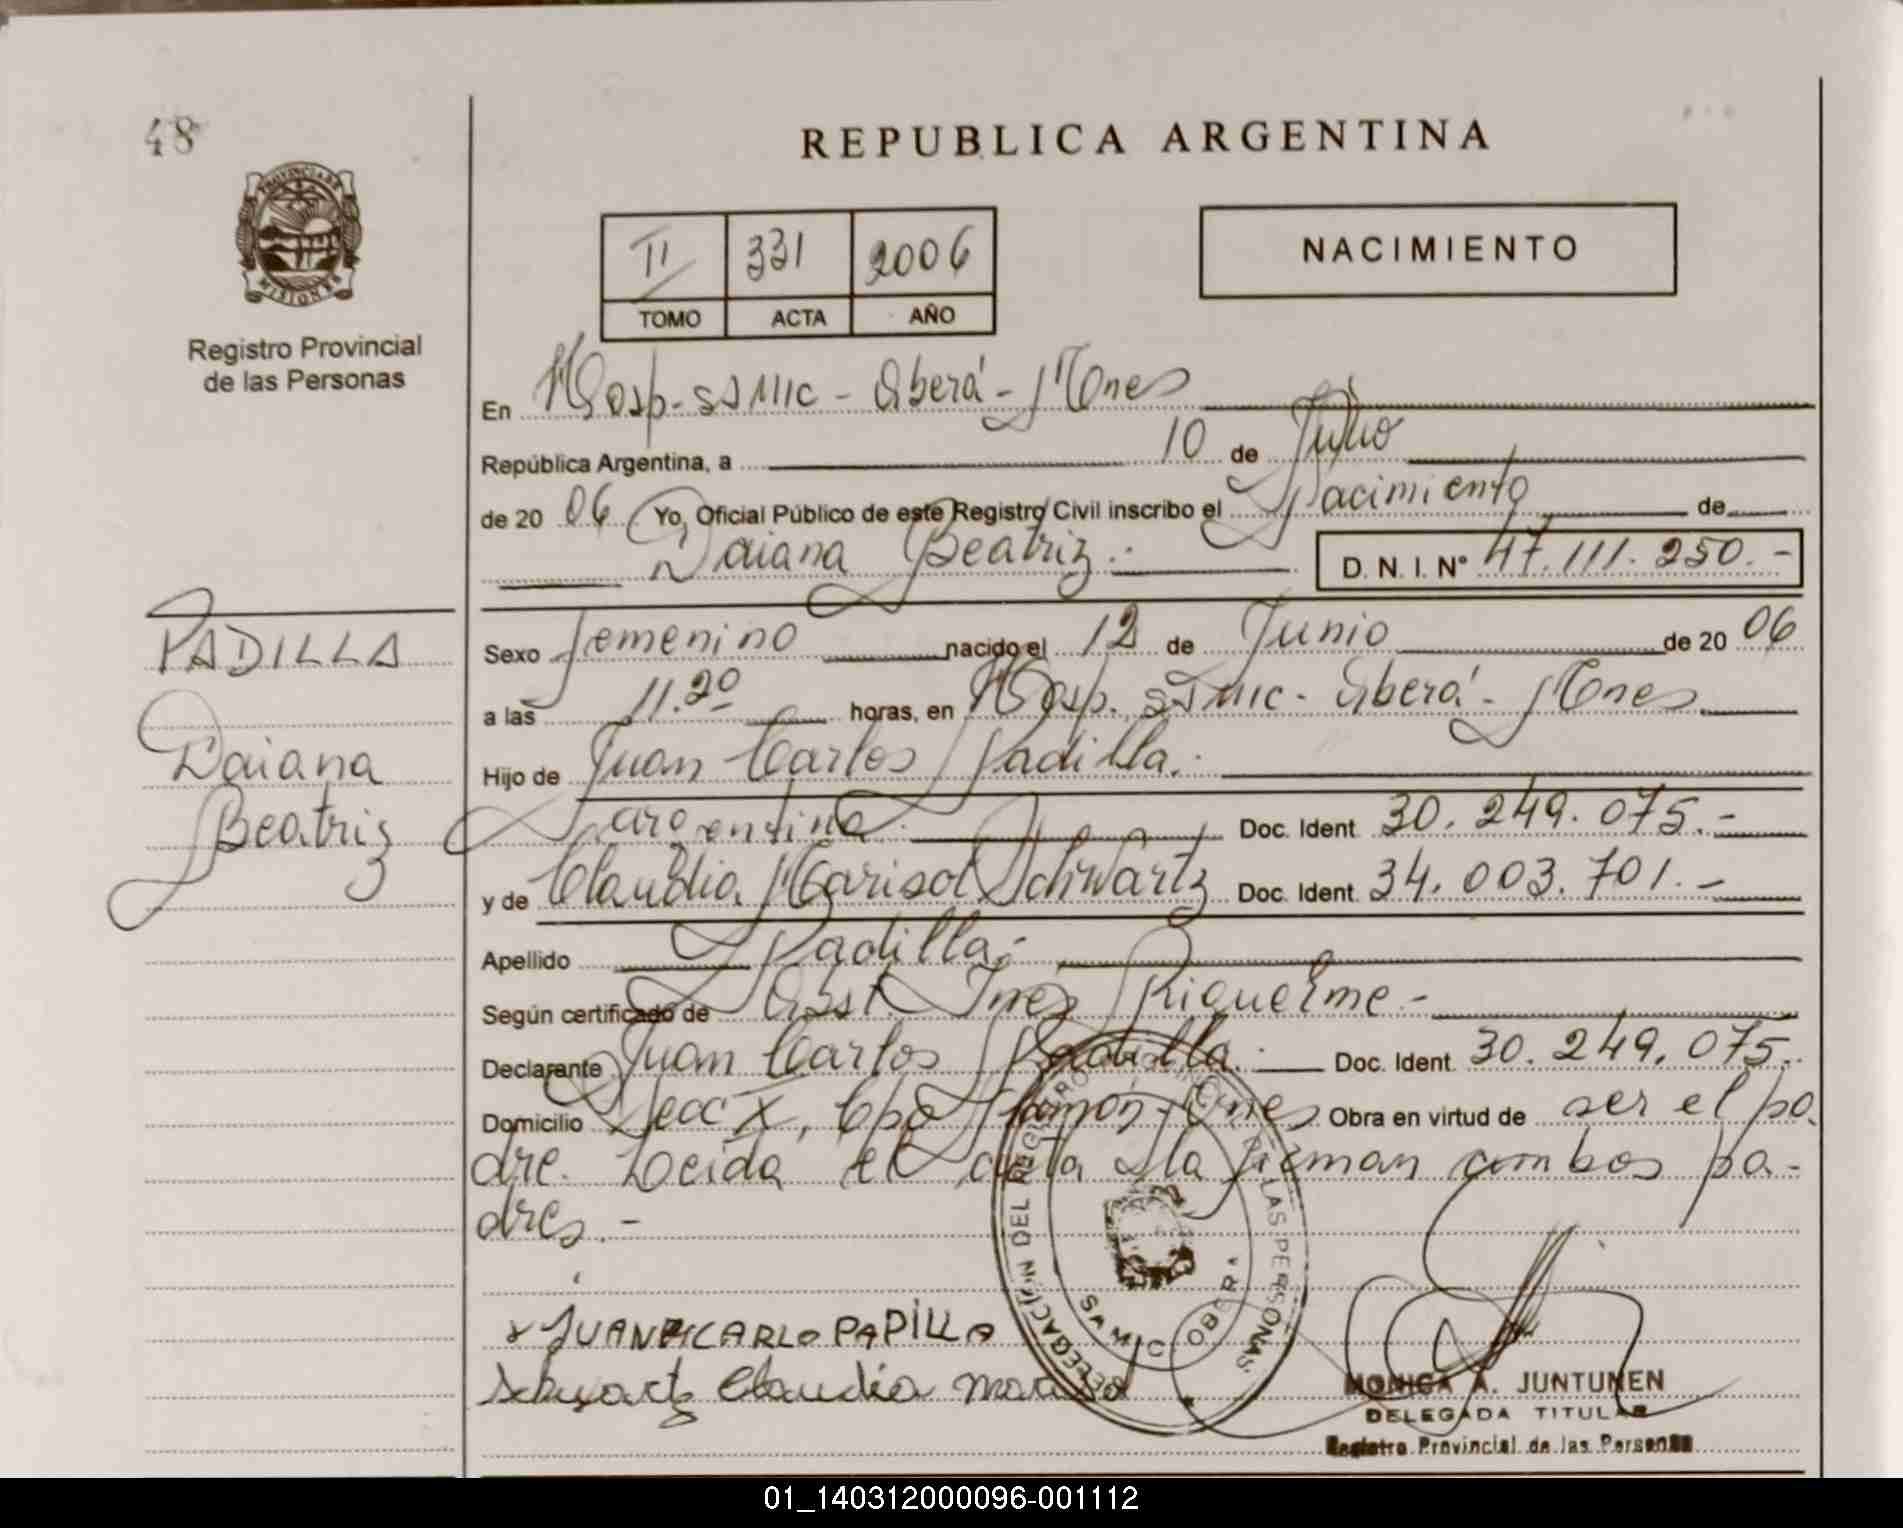 48
REPUBLICA ARGENTINA
PROVINCIA DE
MISIONES
Registro Provincial
de las Personas
II 331 2006
TOMO ACTA AÑO
NACIMIENTO
En Hosp. SAMIC - Oberá - Mnes
República Argentina, a 10 de Julio
de 20 06 Yo, Oficial Público de este Registro Civil inscribo el Nacimiento de
Daiana Beatriz.- D. N. I. Nº 47.111.250.-
PADILLA
Daiana
Beatriz
Sexo femenino nacido el 12 de Junio de 20 06
a las 11.20 horas, en Hosp. SAMIC - Oberá - Mnes
Hijo de Juan Carlos Padilla.
argentina Doc. Ident. 30.249.075.-
y de Claudia Marisol Schwartz Doc. Ident. 34.003.701.-
Apellido Padilla.-
Según certificado de Obst. Ines Riquelme.-
Declarante Juan Carlos Padilla.- Doc. Ident. 30.249.075.
Domicilio Secc X, Cpo Ramón - Mnes Obra en virtud de ser el pa
dre. Leída el acta la firman ambos pa-
dres.-
x JUAN CARLO PADILLA
Schwartz Claudia Marisol
DELEGACIÓN DEL REGISTRO DE LAS PERSONAS
SAMIC OBERA
MONICA A. JUNTUNEN
DELEGADA TITULAR
Registro Provincial de las Personas
01_140312000096-001112